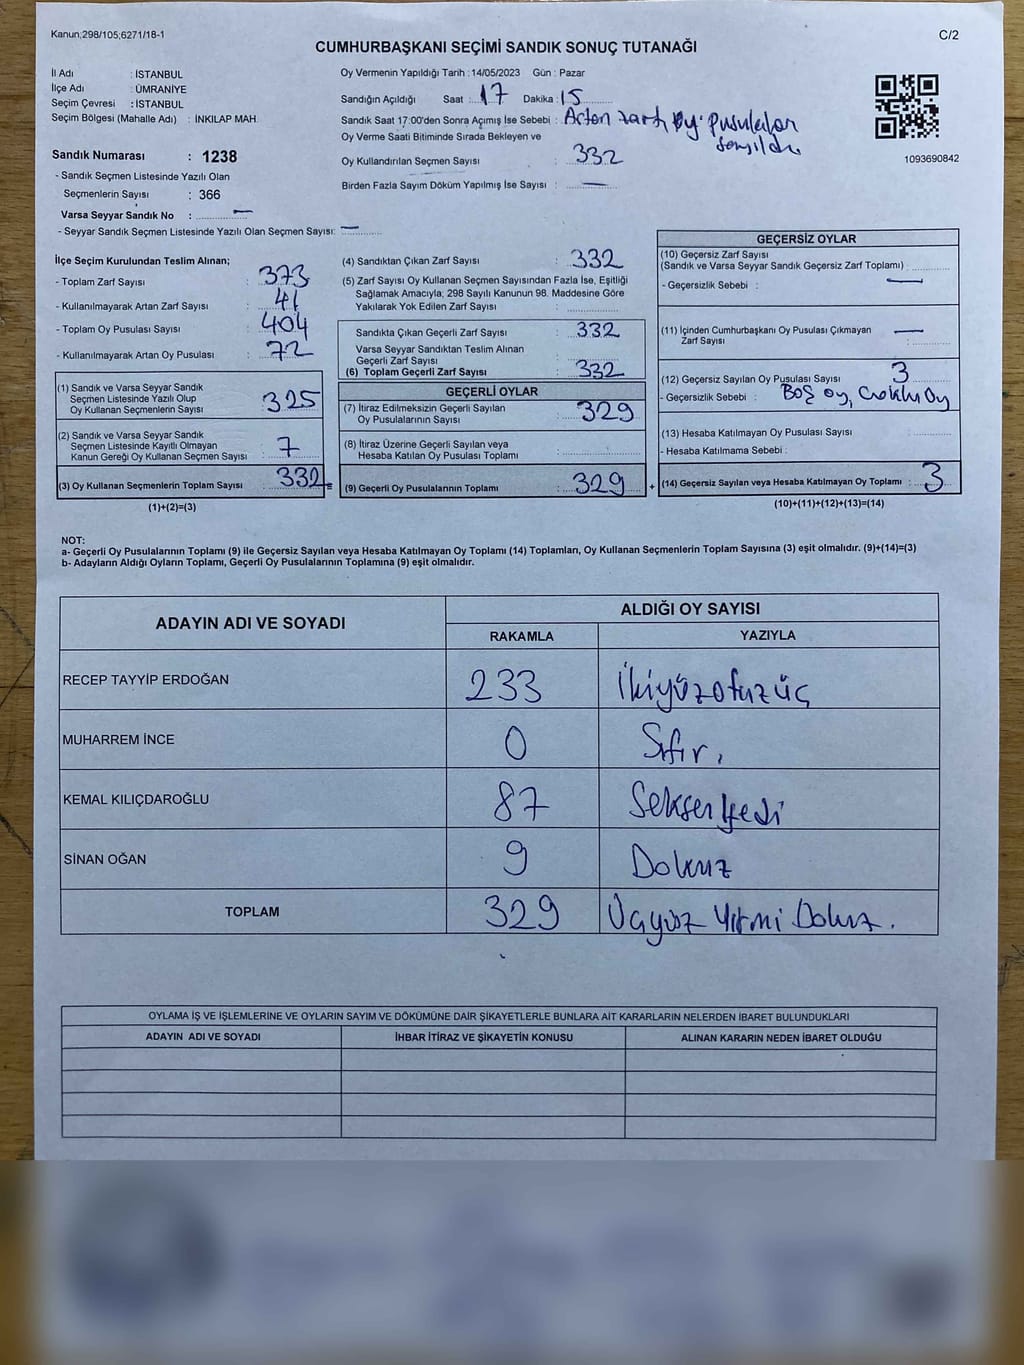 Kanun;298/105;6271/18-1
C/2
CUMHURBAŞKANI SEÇİMİ SANDIK SONUÇ TUTANAĞI
İl Adı : İSTANBUL
İlçe Adı : ÜMRANİYE
Seçim Çevresi : İSTANBUL
Seçim Bölgesi (Mahalle Adı) : İNKILAP MAH.
Sandık Numarası : 1238
- Sandık Seçmen Listesinde Yazılı Olan
Seçmenlerin Sayısı : 366
Varsa Seyyar Sandık No : —
- Seyyar Sandık Seçmen Listesinde Yazılı Olan Seçmen Sayısı: —
Oy Vermenin Yapıldığı Tarih : 14/05/2023 Gün : Pazar
Sandığın Açıldığı Saat : 17 Dakika : 15
Sandık Saat 17:00'den Sonra Açılmış İse Sebebi : Artan zarf, oy pusulalar
sayıldı
Oy Verme Saati Bitiminde Sırada Bekleyen ve
Oy Kullandırılan Seçmen Sayısı : 332
Birden Fazla Sayım Döküm Yapılmış İse Sayısı : —
1093690842
İlçe Seçim Kurulundan Teslim Alınan;
- Toplam Zarf Sayısı : 373
- Kullanılmayarak Artan Zarf Sayısı : 41
- Toplam Oy Pusulası Sayısı : 404
- Kullanılmayarak Artan Oy Pusulası : 72
(1) Sandık ve Varsa Seyyar Sandık
Seçmen Listesinde Yazılı Olup
Oy Kullanan Seçmenlerin Sayısı : 325
(2) Sandık ve Varsa Seyyar Sandık
Seçmen Listesinde Kayıtlı Olmayan
Kanun Gereği Oy Kullanan Seçmen Sayısı : 7
(3) Oy Kullanan Seçmenlerin Toplam Sayısı : 332 =
(1)+(2)=(3)
(4) Sandıktan Çıkan Zarf Sayısı : 332
(5) Zarf Sayısı Oy Kullanan Seçmen Sayısından Fazla İse, Eşitliği
Sağlamak Amacıyla; 298 Sayılı Kanunun 98. Maddesine Göre
Yakılarak Yok Edilen Zarf Sayısı :
Sandıkta Çıkan Geçerli Zarf Sayısı : 332
Varsa Seyyar Sandıktan Teslim Alınan
Geçerli Zarf Sayısı :
(6) Toplam Geçerli Zarf Sayısı : 332
GEÇERLİ OYLAR
(7) İtiraz Edilmeksizin Geçerli Sayılan
Oy Pusulalarının Sayısı : 329
(8) İtiraz Üzerine Geçerli Sayılan veya
Hesaba Katılan Oy Pusulası Toplamı :
(9) Geçerli Oy Pusulalarının Toplamı : 329 +
GEÇERSİZ OYLAR
(10) Geçersiz Zarf Sayısı
(Sandık ve Varsa Seyyar Sandık Geçersiz Zarf Toplamı) :
- Geçersizlik Sebebi : —
(11) İçinden Cumhurbaşkanı Oy Pusulası Çıkmayan —
Zarf Sayısı :
(12) Geçersiz Sayılan Oy Pusulası Sayısı : 3
- Geçersizlik Sebebi : Boş oy, Oy
(13) Hesaba Katılmayan Oy Pusulası Sayısı :
- Hesaba Katılmama Sebebi :
(14) Geçersiz Sayılan veya Hesaba Katılmayan Oy Toplamı : 3
(10)+(11)+(12)+(13)=(14)
NOT:
a- Geçerli Oy Pusulalarının Toplamı (9) ile Geçersiz Sayılan veya Hesaba Katılmayan Oy Toplamı (14) Toplamları, Oy Kullanan Seçmenlerin Toplam Sayısına (3) eşit olmalıdır. (9)+(14)=(3)
b- Adayların Aldığı Oyların Toplamı, Geçerli Oy Pusulalarının Toplamına (9) eşit olmalıdır.
ADAYIN ADI VE SOYADI
ALDIĞI OY SAYISI
RAKAMLA YAZIYLA
RECEP TAYYİP ERDOĞAN 233 İkiyüzotuzüç
MUHARREM İNCE 0 Sıfır,
KEMAL KILIÇDAROĞLU 87 Seksenyedi
SİNAN OĞAN 9 Dokuz
TOPLAM 329 Üçyüz Yirmi Dokuz.
OYLAMA İŞ VE İŞLEMLERİNE VE OYLARIN SAYIM VE DÖKÜMÜNE DAİR ŞİKAYETLERLE BUNLARA AİT KARARLARIN NELERDEN İBARET BULUNDUKLARI
ADAYIN ADI VE SOYADI İHBAR İTİRAZ VE ŞİKAYETİN KONUSU ALINAN KARARIN NEDEN İBARET OLDUĞU